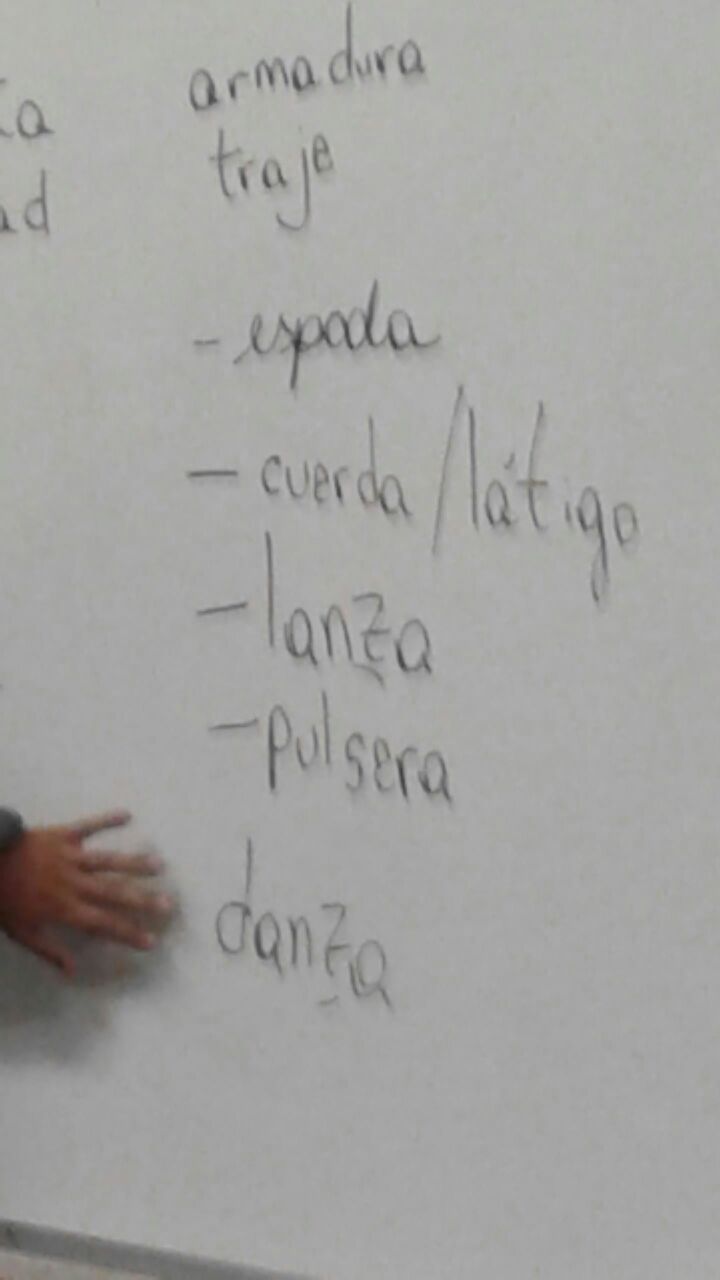 armadura
traje
- espada
- cuerda / látigo
- lanza
- pulsera
danza